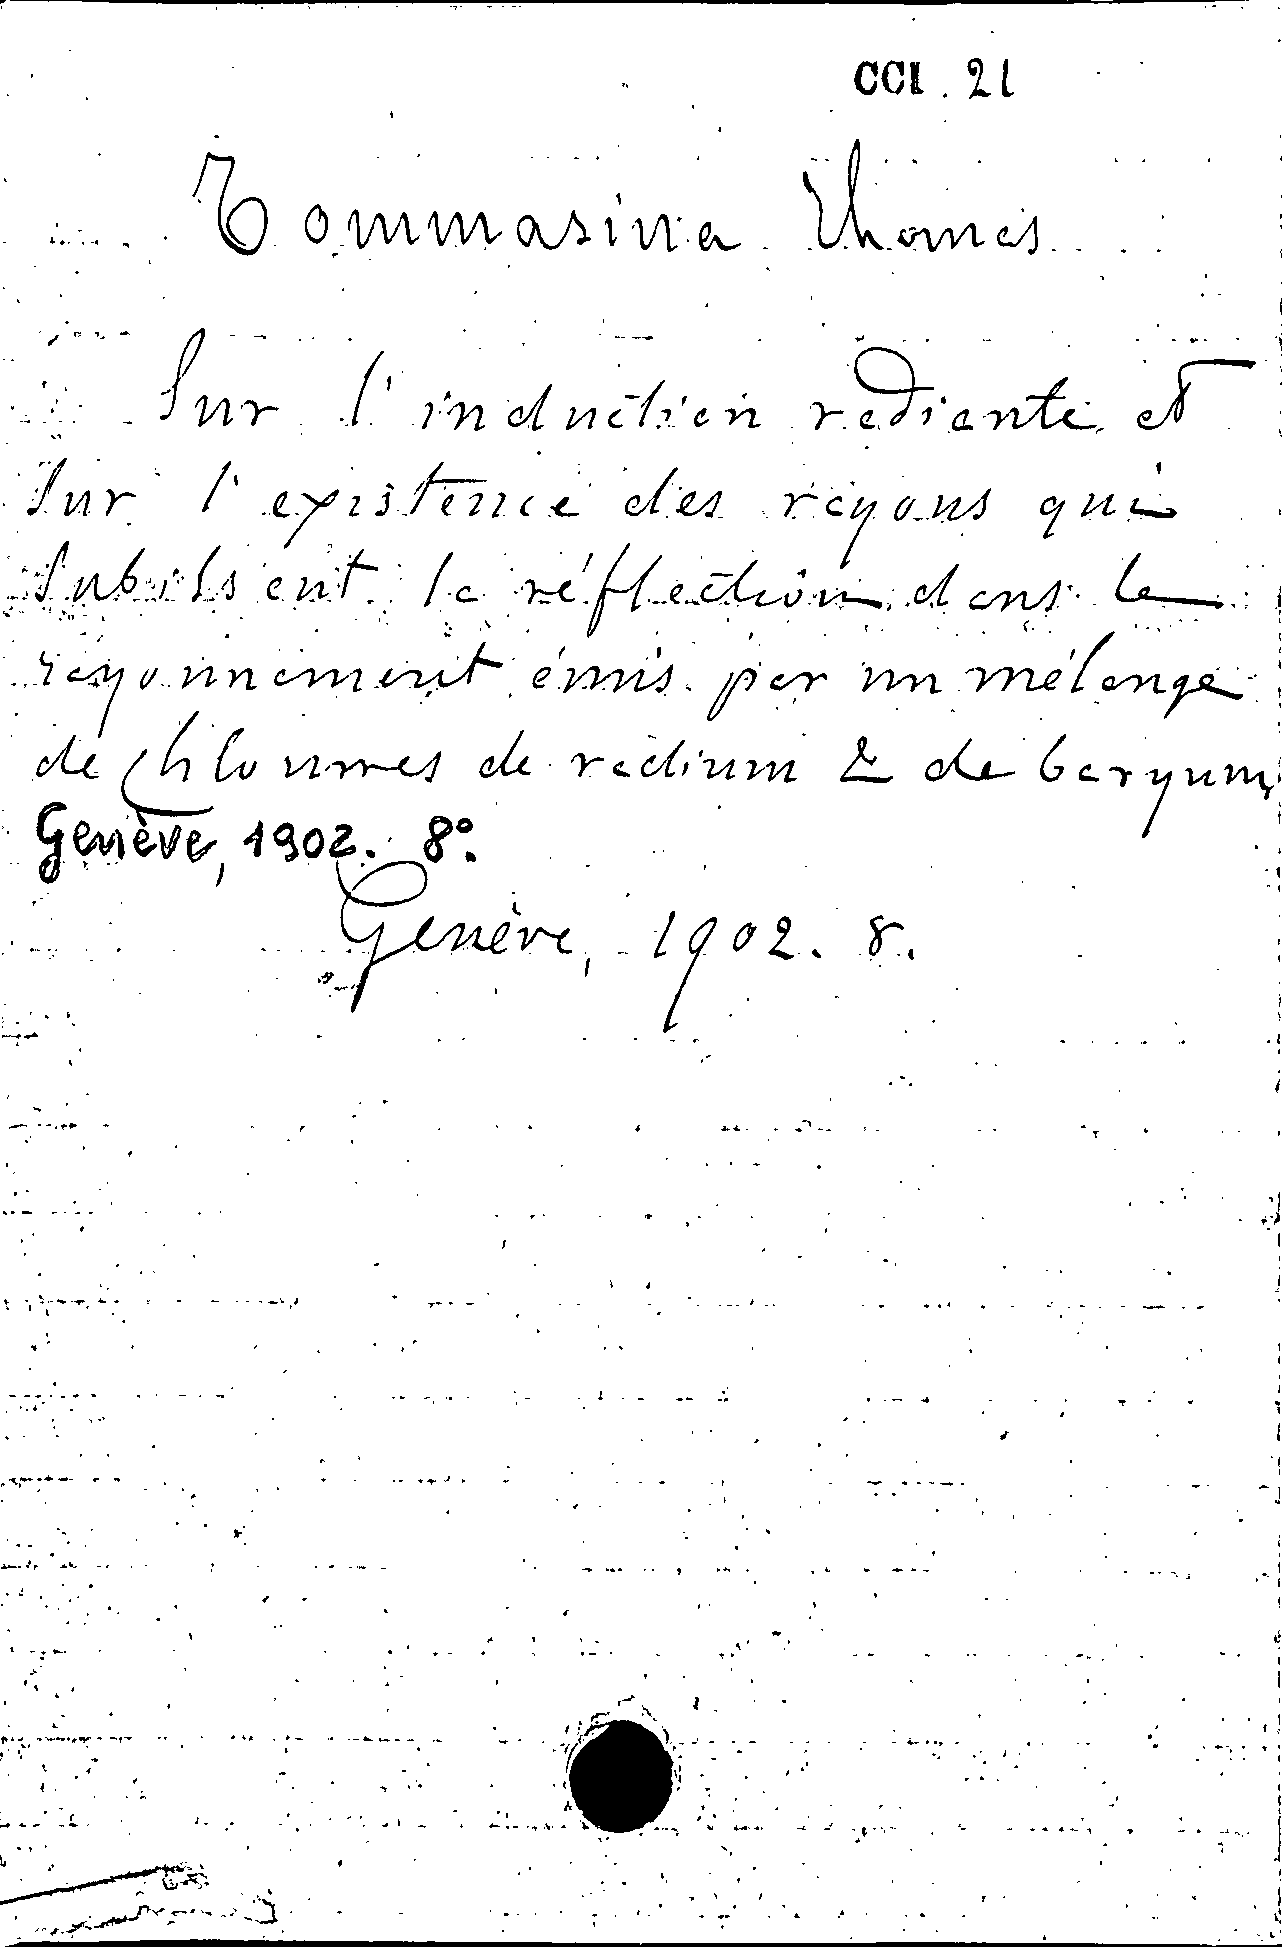 CCI . 21
Tommasina Thomas
Sur l'induction radiante et
sur l'existence des rayons qui
subissent la réflection dans le
rayonnement émis par un mélange
de chlorures de radium & de baryum,
Genève, 1902. 8°.
Genève, 1902. 8.